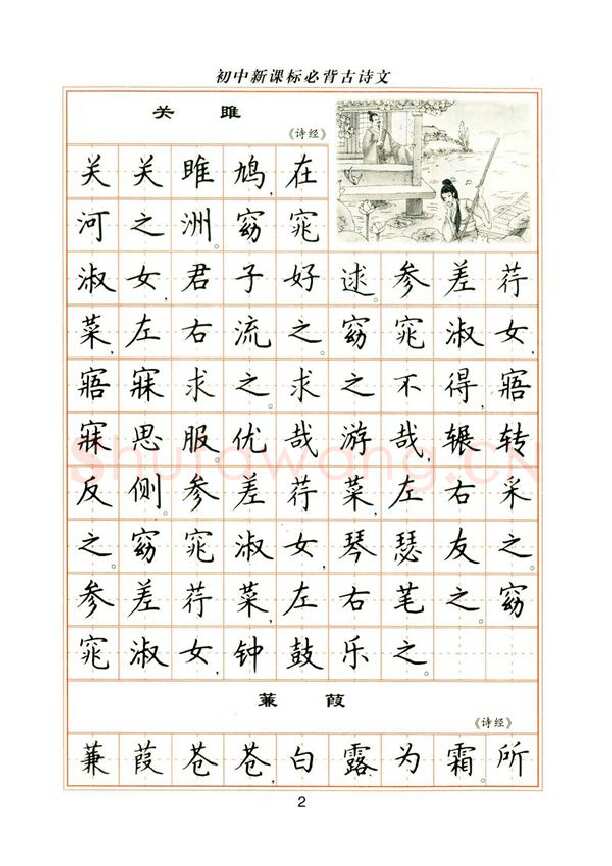 初中新课标必背古诗文
关 雎
《诗经》
关关雎鸠,在
河之洲。窈窕
淑女,君子好逑。参差荇
菜,左右流之。窈窕淑女,
寤寐求之。求之不得,寤
寐思服。优哉游哉,辗转
反侧。参差荇菜,左右采
之。窈窕淑女,琴瑟友之。
参差荇菜,左右芼之。窈
窕淑女,钟鼓乐之。
蒹 葭
《诗经》
蒹葭苍苍,白露为霜。所
2
Shufawang.CN